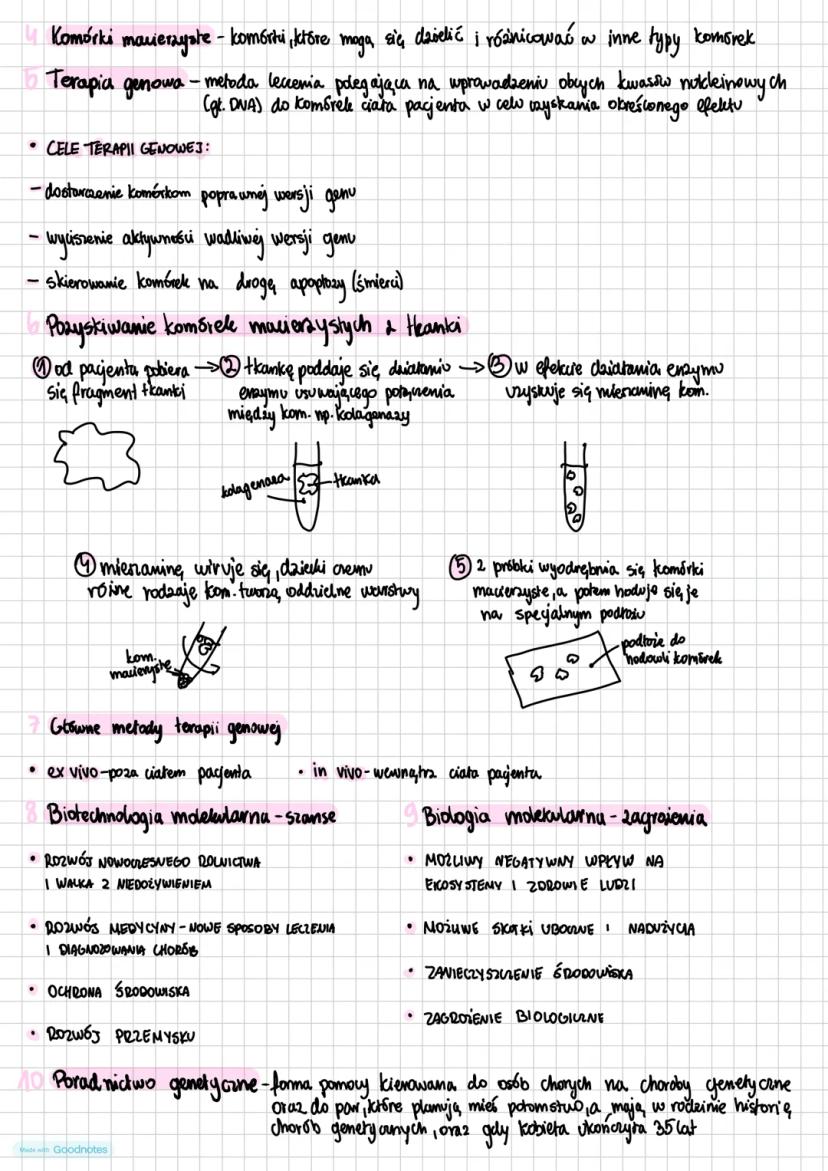 4 Komórki macierzyste - komórki, które mogą się dzielić i różnicować w inne typy komórek
5 Terapia genowa - metoda leczenia polegająca na wprowadzeniu obcych kwasów nukleinowych
(gł. DNA) do komórek ciała pacjenta w celu uzyskania określonego efektu
• CELE TERAPII GENOWEJ:
- dostarczenie komórkom poprawnej wersji genu
- wyciszenie aktywności wadliwej wersji genu
- skierowanie komórek na drogę apoptozy (śmierci)
6 Pozyskiwanie komórek macierzystych z tkanki
① od pacjenta pobiera → ② tkankę poddaje się działaniu → ③ w efekcie działania enzymu
się fragment tkanki enzymu usuwającego połączenia uzyskuje się mieszaninę kom.
między kom. np. kolagenazy
kolagenaza tkanka
④ mieszaninę wiruje się, dzięki czemu ⑤ z próbki wyodrębnia się komórki
różne rodzaje kom. tworzą oddzielne warstwy macierzyste, a potem hoduje się je
na specjalnym podłożu
kom. podłoże do
macierzyste hodowli komórek
7 Główne metody terapii genowej
• ex vivo - poza ciałem pacjenta • in vivo - wewnątrz ciała pacjenta
8 Biotechnologia molekularna - szanse 9 Biologia molekularna - zagrożenia
• ROZWÓJ NOWOCZESNEGO ROLNICTWA • MOŻLIWY NEGATYWNY WPŁYW NA
I WALKA Z NIEDOŻYWIENIEM EKOSYSTEMY I ZDROWIE LUDZI
• ROZWÓJ MEDYCYNY - NOWE SPOSOBY LECZENIA • MOŻLIWE SKUTKI UBOCZNE I NADUŻYCIA
I DIAGNOZOWANIA CHORÓB
• ZANIECZYSZCZENIE ŚRODOWISKA
• OCHRONA ŚRODOWISKA
• ZAGROŻENIE BIOLOGICZNE
• ROZWÓJ PRZEMYSŁU
10 Poradnictwo genetyczne - forma pomocy kierowana do osób chorych na choroby genetyczne
oraz do par, które planują mieć potomstwo, a mają w rodzinie historię
chorób genetycznych, oraz gdy kobieta ukończyła 35 lat
Made with Goodnotes